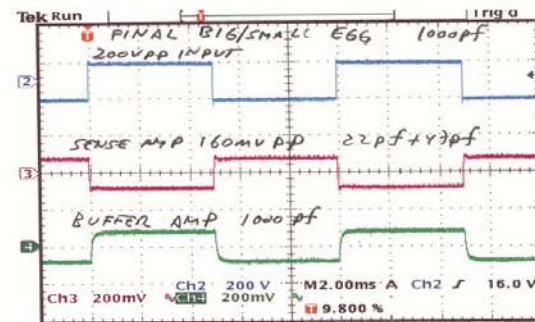 Tek Run Trig'd
FINAL BIG/SMALL EGG 1000pf
200VPP INPUT
2
SENSE AMP 160MV PP 22pf+47pf
3
BUFFER AMP 1000pf
4
Ch2 200 V M2.00ms A Ch2 16.0 V
Ch3 200mV Ch4 200mV
9.800 %